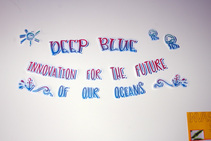 DEEP BLUE
INNOVATION FOR THE FUTURE
OF OUR OCEANS